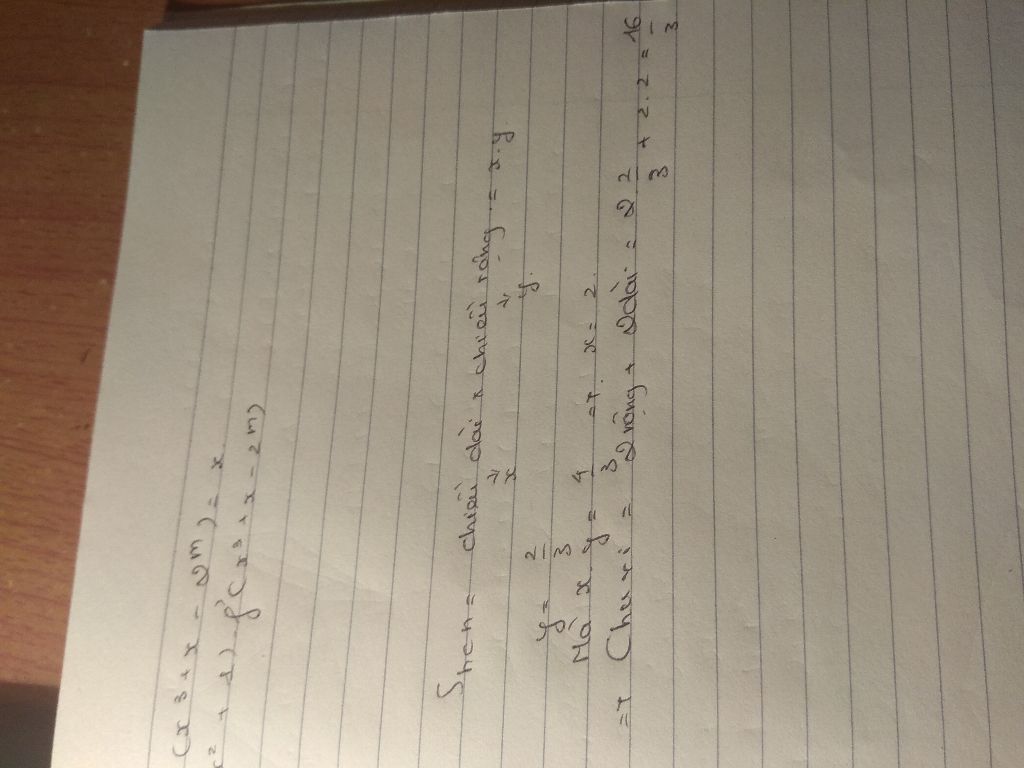 (x³ + x - 2m) = x
+ 1) f'(x³ + x - 2m)
Shcn = chiều dài x chiều rộng = x.y.
↓ ↓
x y.
y = 2/3
Mà x.y = 4/3 => x = 2.
=> Chu vi = 2 rộng + 2 dài = 2 2/3 + 2.2 = 16/3